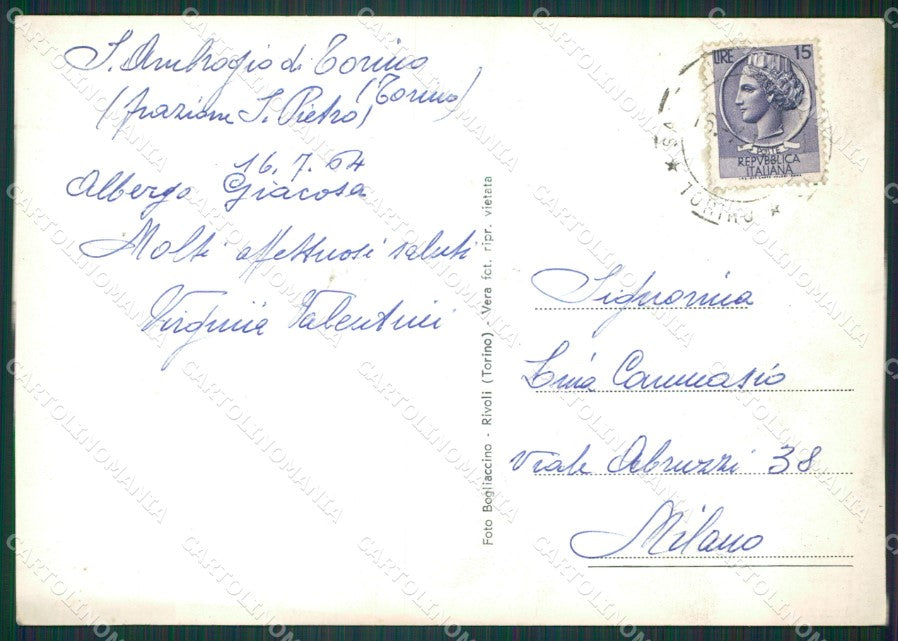 S. Ambrogio di Torino
(Torino)
(frazione S. Pietro)
16.7.64
Albergo Giacosa
Molti affettuosi saluti
Virginia Valentini
Foto Bogliaccino - Rivoli (Torino) - Vera fot. ripr. vietata
LIRE 15
POSTE
REPVBBLICA
ITALIANA
TORINO
Signorina
Lina Cammasio
Viale Abruzzi 38
Milano
CARTOLINOMANIA